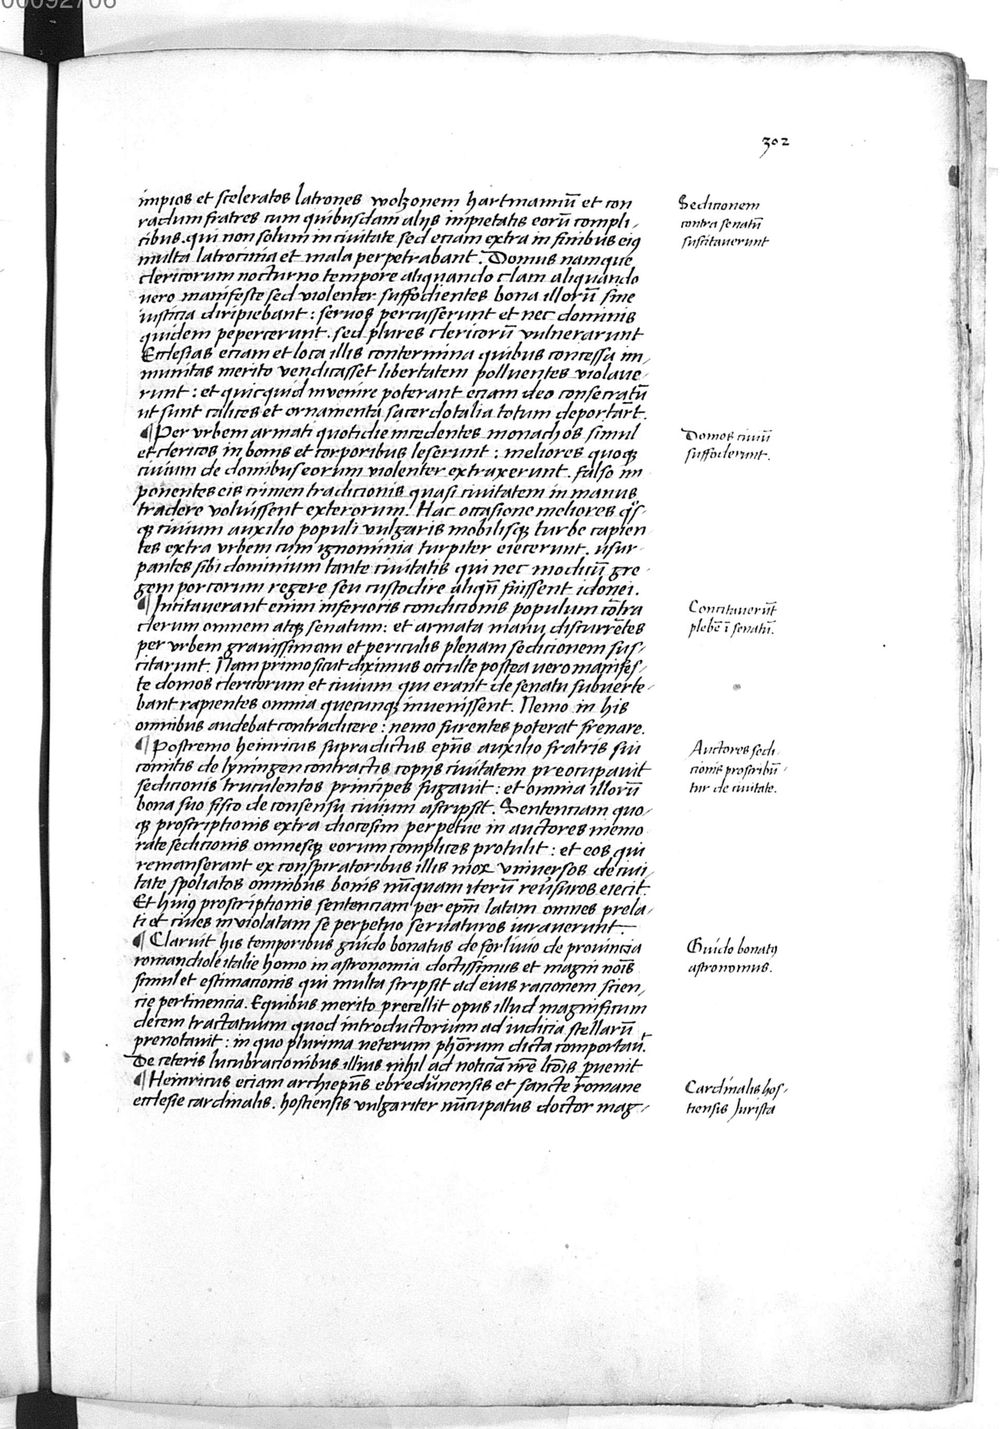 00092706
302
impios et sceleratos latrones wolzonem hartmannū et con
radum fratres cum quibusdam alijs impietatis eorū compli,
cibus. qui non solum in ciuitate sed eciam extra in finibus eiꝯ
multa latrocinia et mala perpetrabant. Domus namque
clericorum nocturno tempore aliquando clam aliquando
uero manifeste sed violenter suffodientes bona illorū sine
iusticia diripiebant: seruos percusserunt et nec dominis
quidem pepercerunt. sed plures clericorū vulnerarunt
Ecclesias eciam et loca illis contermina quibus concessa im,
munitas merito vendicasset libertatem polluentes violaue-
runt: et quicquid inuenire poterant eciam deo consecratū
ut sunt calices et ornamenta sacerdotalia totum deportar̄t.
¶ Per vrbem armati quotidie incedentes monachos simul
et clericos in bonis et corporibus leserunt: meliores quoqꝫ
ciuium de domibus eorum violenter extraxerunt. falso im
ponentes eis crimen tradicionis quasi ciuitatem in manus
tradere voluissent exterorum. Hac occasione meliores q̊s-
qꝫ ciuium auxilio populi vulgaris mobilisqꝫ turbe capien
tes extra vrbem cum ignominia turpiter eiecerunt. vsur-
pantes sibi dominium tante ciuitatis qui nec modicū gre-
gem porcorum regere seu custodire aliqn̄ fuissent idonei.
¶ Incitauerant enim inferioris condicionis populum cōtra
clerum omnem atqꝫ senatum: et armata manu discurrētes
per vrbem grauissimam et periculis plenam sedicionem sus-
citarunt. Nam primo sicut diximus occulte postea uero manifes-
te domos clericorum et ciuium qui erant de senatu subuerte-
bant rapientes omnia quecunqꝫ inuenissent. Nemo in his
omnibus audebat contradicere: nemo furentes poterat frenare.
¶ Postremo heinricus supradictus ep̄us auxilio fratris sui
comitis de lyningen contractis copijs ciuitatem preocupauit
sedicionis truculentos principes fugauit: et omnia illorū
bona suo fisco de consensu ciuium ascripsit. Sentenciam quo-
qꝫ proscriptionis extra diocesim perpetue in auctores memo
rate sedicionis omnesqꝫ eorum complices protulit: et eos qui
remanserant ex conspiratoribus illis mox vniuersos de ciui
tate spoliatos omnibus bonis nūquam iterū reuisuros eiecit.
Et huiꝯ proscriptionis sentenciam per ep̄m latam omnes prela-
ti et ciues inuiolatam se perpetuo seruaturos iurauerunt.
¶ Claruit his temporibus guido bonatus de forliuio de prouincia
romandiole italie homo in astronomia doctissimus et magni nōis
simul et estimacionis qui multa scripsit ad eius racionem scien,
cie pertinencia. E quibus merito precellit opus illud magnificum
decem tractatuum quod introductorium ad iudicia stellarū
prenotauit: in quo plurima veterum ph̄orum dicta comportau̅t.
De ceteris lucubracionibus illius nihil ad noticiā nr̄e lcōis ꝑuenit
¶ Heinricus eciam archiep̄us ebredunensis et sancte romane
ecclesie cardinalis. hostiensis vulgariter nūcupatus doctor mag-
Sedicionem
contra senatū
suscitauerunt
Domos ciuiū
suffoderunt.
Concitauerūt
plebē ī senatū.
Auctores sedi
cionis proscribū-
tur de ciuitate.
Guido bonatꝯ
astronomus.
Cardinalis hos-
tiensis Jurista